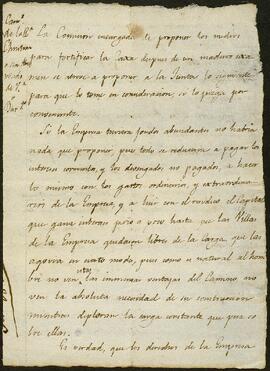 La Comision encargada de proponer los medios
para fortificar la Caxa despues de un maduro exa
men se atreve a proponer a la Junta lo siguiente
para que lo tome en consideracion, si lo juzga por
conveniente.
Si la Empresa tuviera fondos abundantes no habria
nada que proponer, pues todo se reduciria a pagar los
intereses corrientes, y los devengados no pagados, a hacer
lo mismo con los gastos ordinarios, y extraordina-
rios de la Empresa, y a luir con el residuo el Capital
que gana interes hasta que las Villas
de la Empresa quedasen libres de la Carga que las
agovia en cierto modo, pues como es natural al hom
bre no ven las inmensas ventajas del Camino ni
ven la absoluta necesidad de su construccion
mientras deploran la carga constante que pesa so
bre ellas.
Es verdad, que los derechos de la Empresa